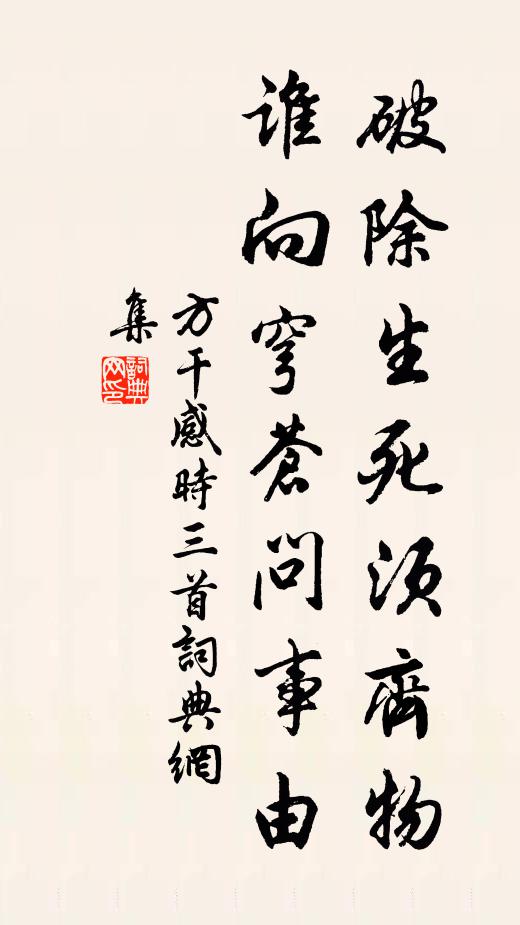 破除生死須齊物
誰向穹蒼問事由
方干感時三首詞典網
集
詞典
网印